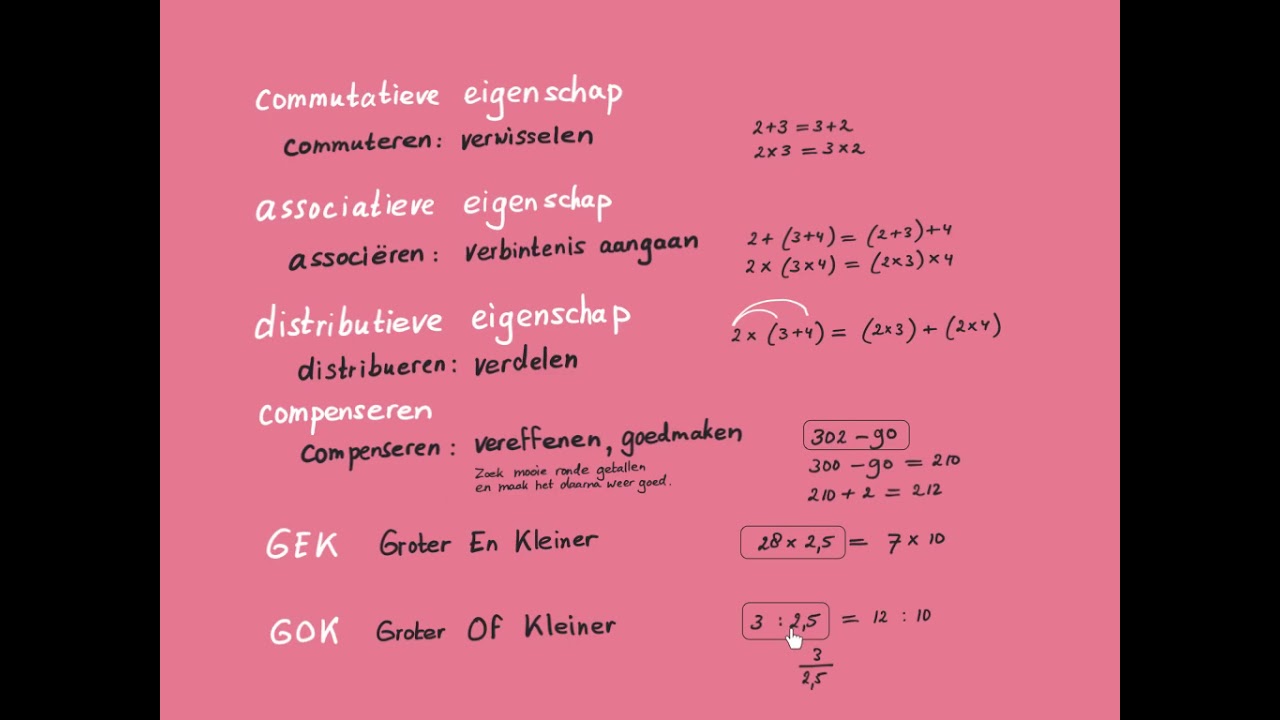 commutatieve eigenschap
commuteren: verwisselen
2+3 = 3+2
2×3 = 3×2
associatieve eigenschap
associëren: verbintenis aangaan
2 + (3+4) = (2+3)+4
2 × (3×4) = (2×3)×4
distributieve eigenschap
2 × (3+4) = (2×3) + (2×4)
distribueren: verdelen
compenseren
compenseren: vereffenen, goedmaken
Zoek mooie ronde getallen
en maak het daarna weer goed.
302 - 90
300 - 90 = 210
210 + 2 = 212
GEK Groter En Kleiner
28 × 2,5 = 7 × 10
GOK Groter Of Kleiner
3 : 2,5 = 12 : 10
3
2,5